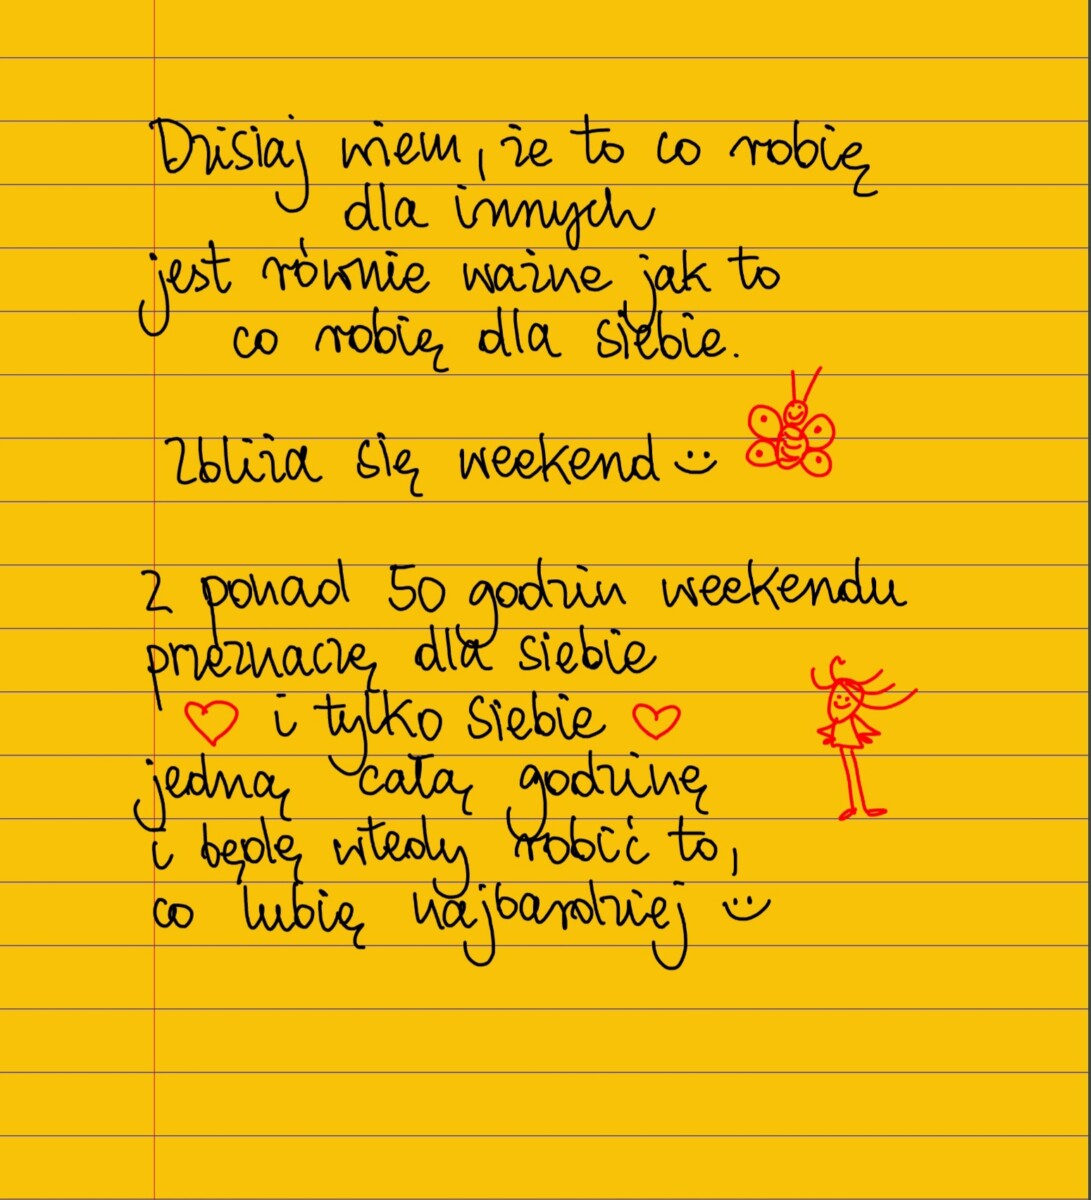 Dzisiaj wiem, że to co robię
dla innych
jest równie ważne jak to
co robię dla siebie.
Zbliża się weekend :)
Z ponad 50 godzin weekendu
przeznaczę dla siebie
♡ i tylko siebie ♡
jedną całą godzinę
i będę wtedy robić to,
co lubię najbardziej :)